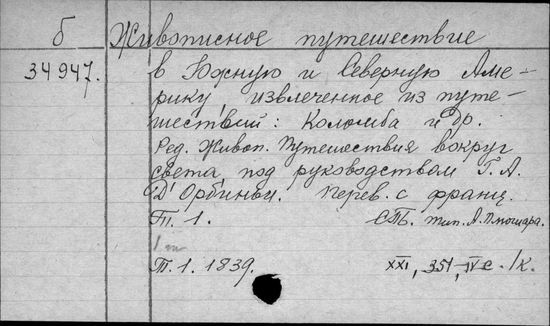 б Живописное путешествие
34947. в Южную и Северную Аме-
рику, извлеченное из путе-
шествий: Коломба и др.
Ред. Живоп. Путешествия вокруг
света, под руководством Г. А.
Д'Орбиньи. Перев. с франц.
Т. 1. СПБ. тип. А. Плюшара.
1 т
Т. 1. 1839. XXI, 351, IV с. 1к.